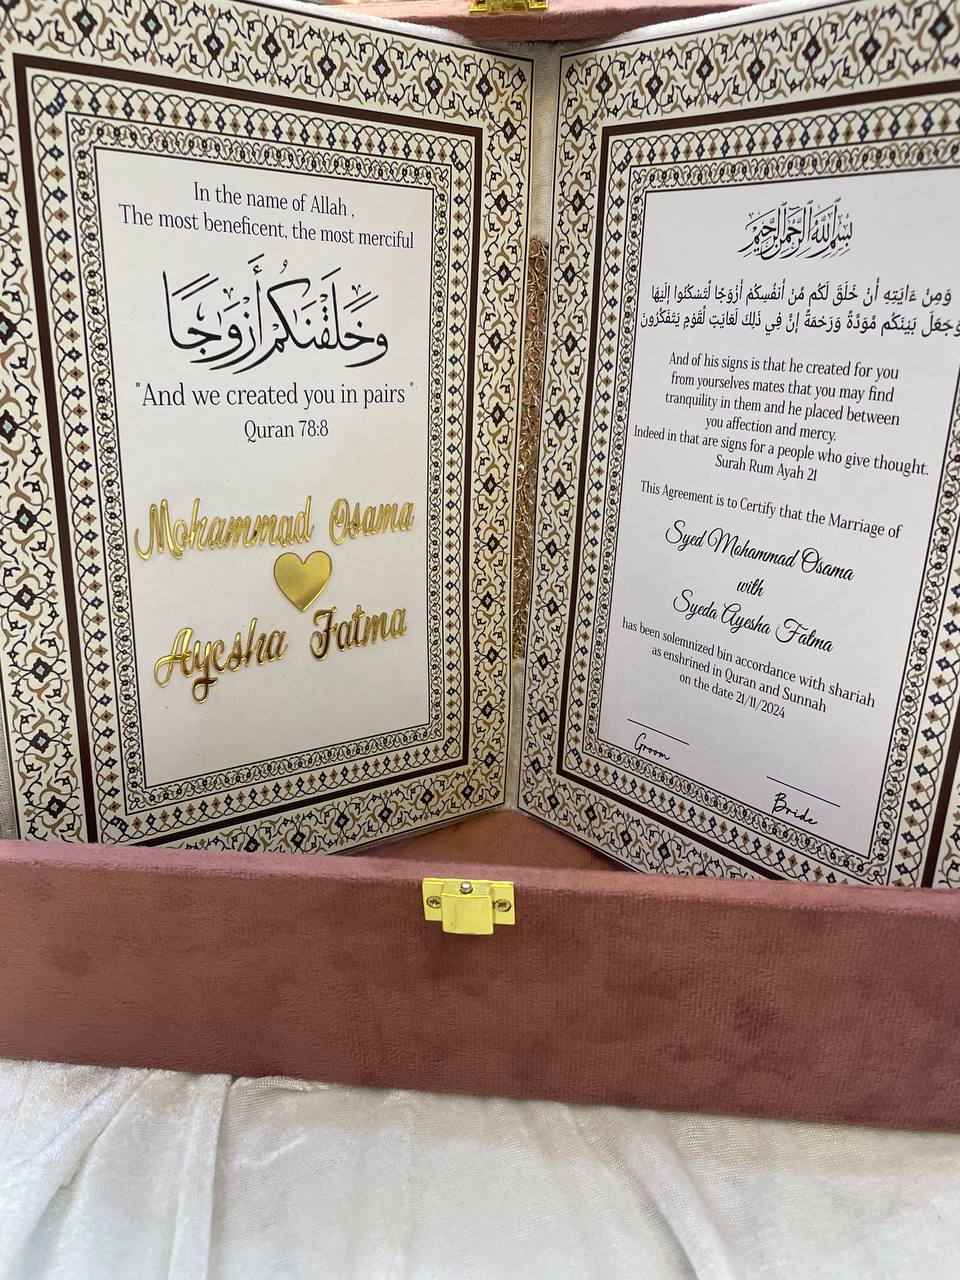 In the name of Allah ,
The most beneficent, the most merciful
وَخَلَقْنَٰكُمْ أَزْوَٰجًا
"And we created you in pairs "
Quran 78:8
Mohammad Osama
Ayesha Fatma
بِسْمِ ٱللَّهِ ٱلرَّحْمَٰنِ ٱلرَّحِيمِ
وَمِنْ ءَايَٰتِهِۦ أَنْ خَلَقَ لَكُم مِّنْ أَنفُسِكُمْ أَزْوَٰجًا لِّتَسْكُنُوٓا۟ إِلَيْهَا
وَجَعَلَ بَيْنَكُم مَّوَدَّةً وَرَحْمَةً إِنَّ فِي ذَٰلِكَ لَءَايَٰتٍ لِّقَوْمٍ يَتَفَكَّرُونَ
And of his signs is that he created for you
from yourselves mates that you may find
tranquility in them and he placed between
you affection and mercy.
Indeed in that are signs for a people who give thought.
Surah Rum Ayah 21
This Agreement is to Certify that the Marriage of
Syed Mohammad Osama
with
Syeda Ayesha Fatma
has been solemnized bin accordance with shariah
as enshrined in Quran and Sunnah
on the date 21/11/2024
Groom
Bride